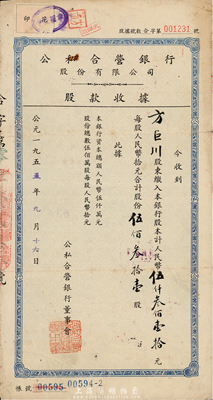 印
股款收據合字第 001231 號
公私合營銀行
股份有限公司
股款收據
今收到
方巨川股東繳入本銀行股本計人民幣伍仟叁佰壹拾元
每股人民幣拾元合計股份伍佰叁拾壹股
此據
本銀行資本總額人民幣伍仟萬元
股份總數伍佰萬股每股人民幣拾元
公私合營銀行董事會
公元一九五五年九月十六日
帳號 00595 00594-2